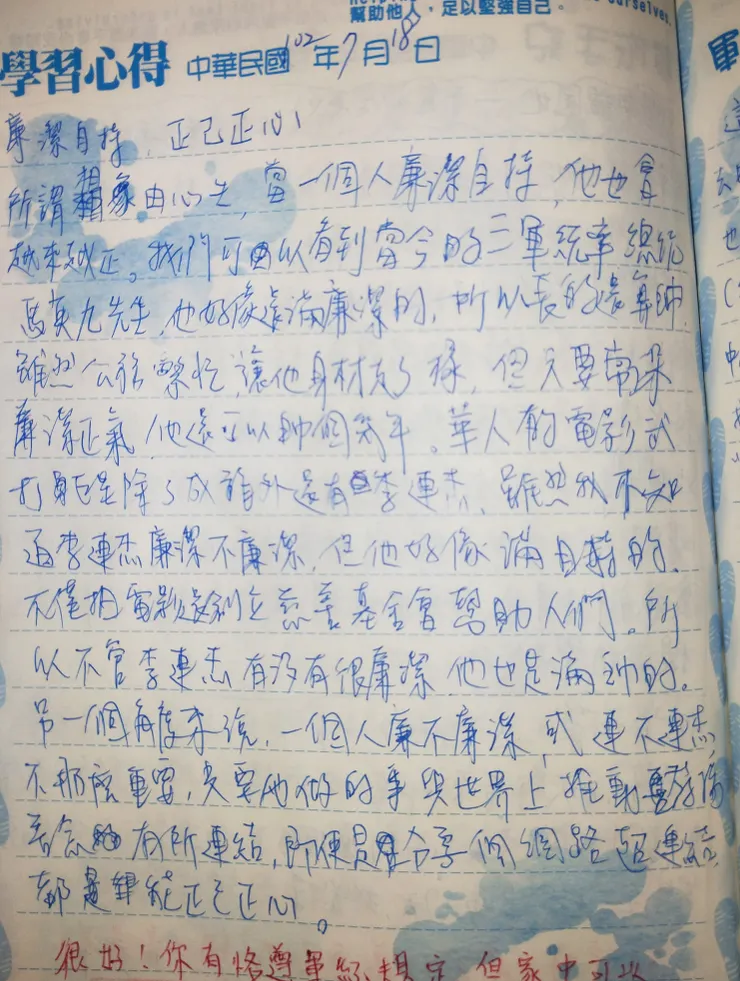 幫助他人，足以堅強自己。
學習心得 中華民國102年7月18日
廉潔自持，正己正心
所謂相由心生，當一個人廉潔自持，他也會
越來越正。我們可以看到當今的三軍統率總統
馬英九先生，他好像還滿廉潔的，所以長的還算帥，
雖然公務繁忙，讓他身材走了樣，但只要常保
廉潔正氣，他還可以帥個幾年。華人的電影武
打巨星除了成龍外還有李連杰，雖然我不知
道李連杰廉潔不廉潔，但他好像滿自持的，
不僅拍電影還創立慈善基金會幫助人們。所
以不管李連杰有沒有很廉潔，他也是滿帥的。
另一個角度來說，一個人廉不廉潔，或連不連杰，
不那麼重要，只要他做的事與世界上推動
善念有所連結，即便是分享個網路超連結，
都是能正己正心。
很好！你有恪遵軍紀規定，但家中可以